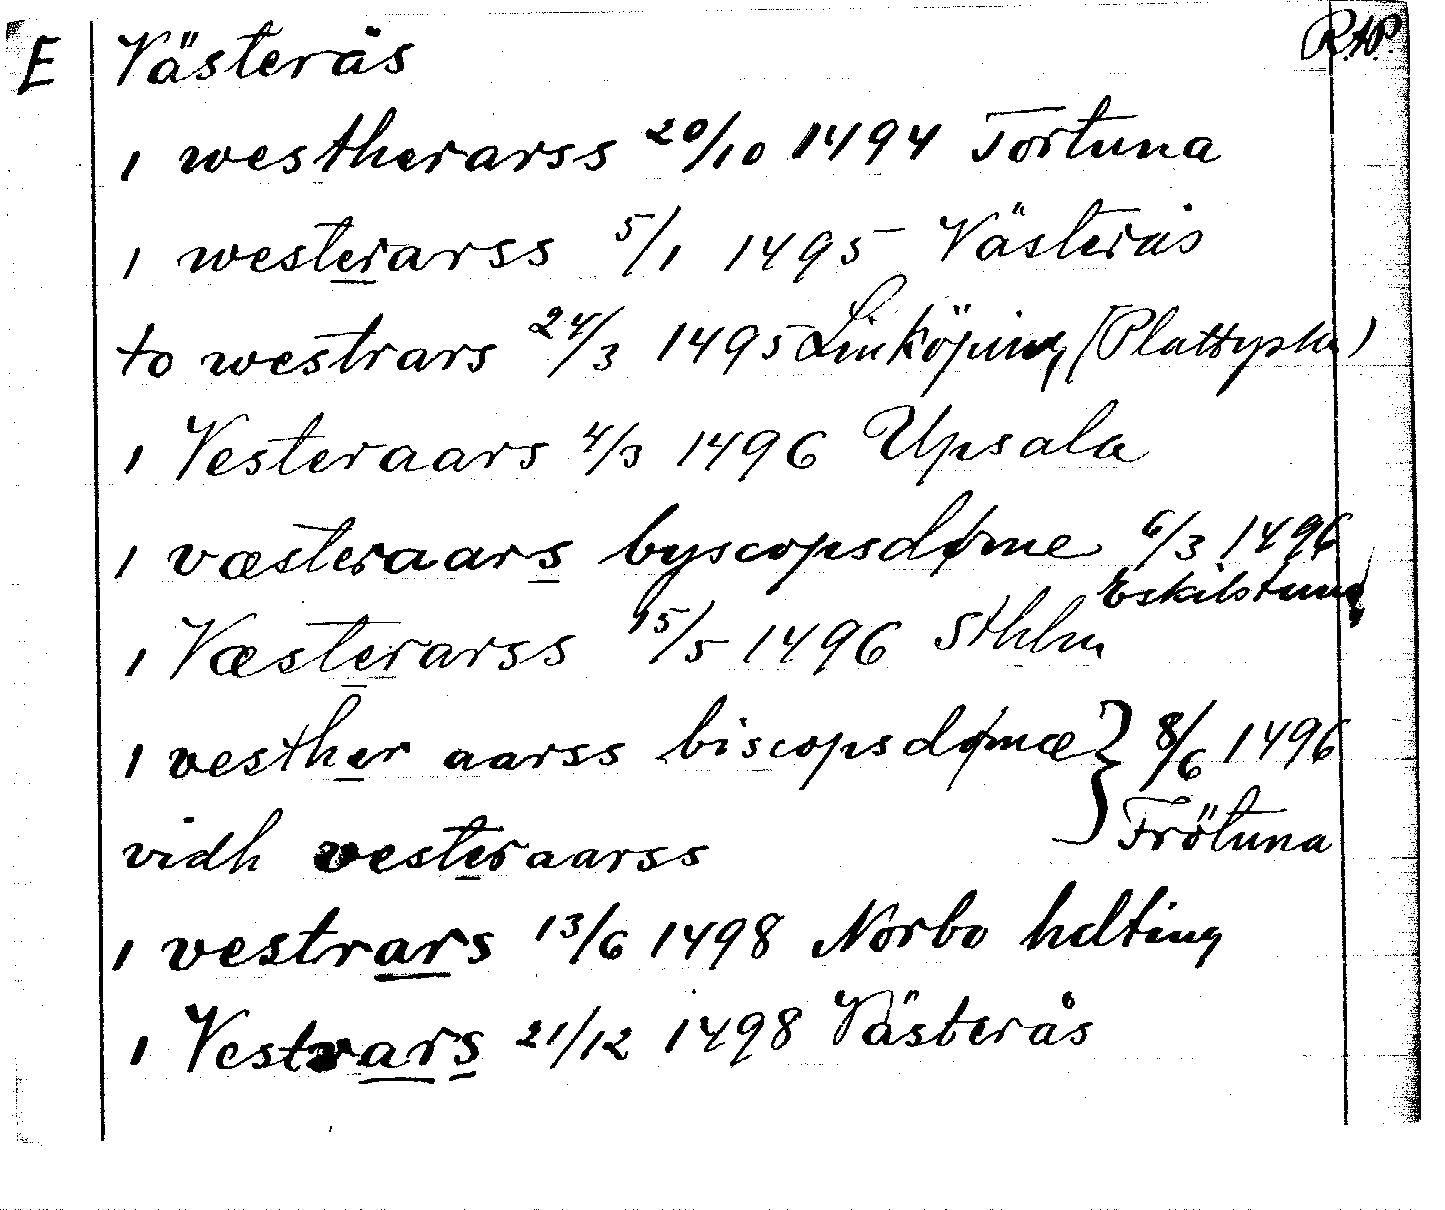 E Västerås R.A.P.
ı westherarss 20/10 1494 Tortuna
ı westerarss 5/1 1495 Västerås
to westrars 24/3 1495 Linköping
ı Vesteraars 4/3 1496 Upsala
ı væsteraars byscopsdøme 6/3 1496
Eskilstuna
ı Væsterarss 15/5 1496 Sthlm
ı vesther aarss biscopsdømæ } 8/6 1496
vidh vesteraarss Frötuna
ı vestrars 13/6 1498 Norbo hdting
ı Vestrars 21/12 1498 Västerås